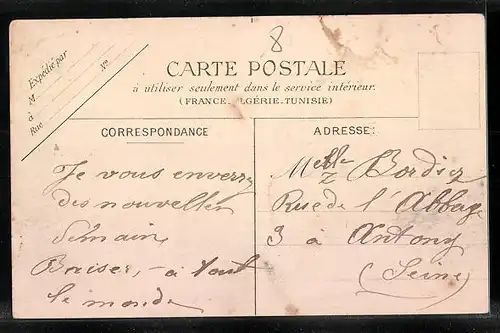 8
CARTE POSTALE
à utiliser seulement dans le service intérieur.
(FRANCE. LGÉRIE.TUNISIE)
Expédié par
M
à
Rue Nº
CORRESPONDANCE
Je vous enverrez
des nouvelles
Semain
Baiser, à tout
le monde
ADRESSE:
Melle Bordiez
Rue de l'Abbaye
3 à Antony
(Seine)